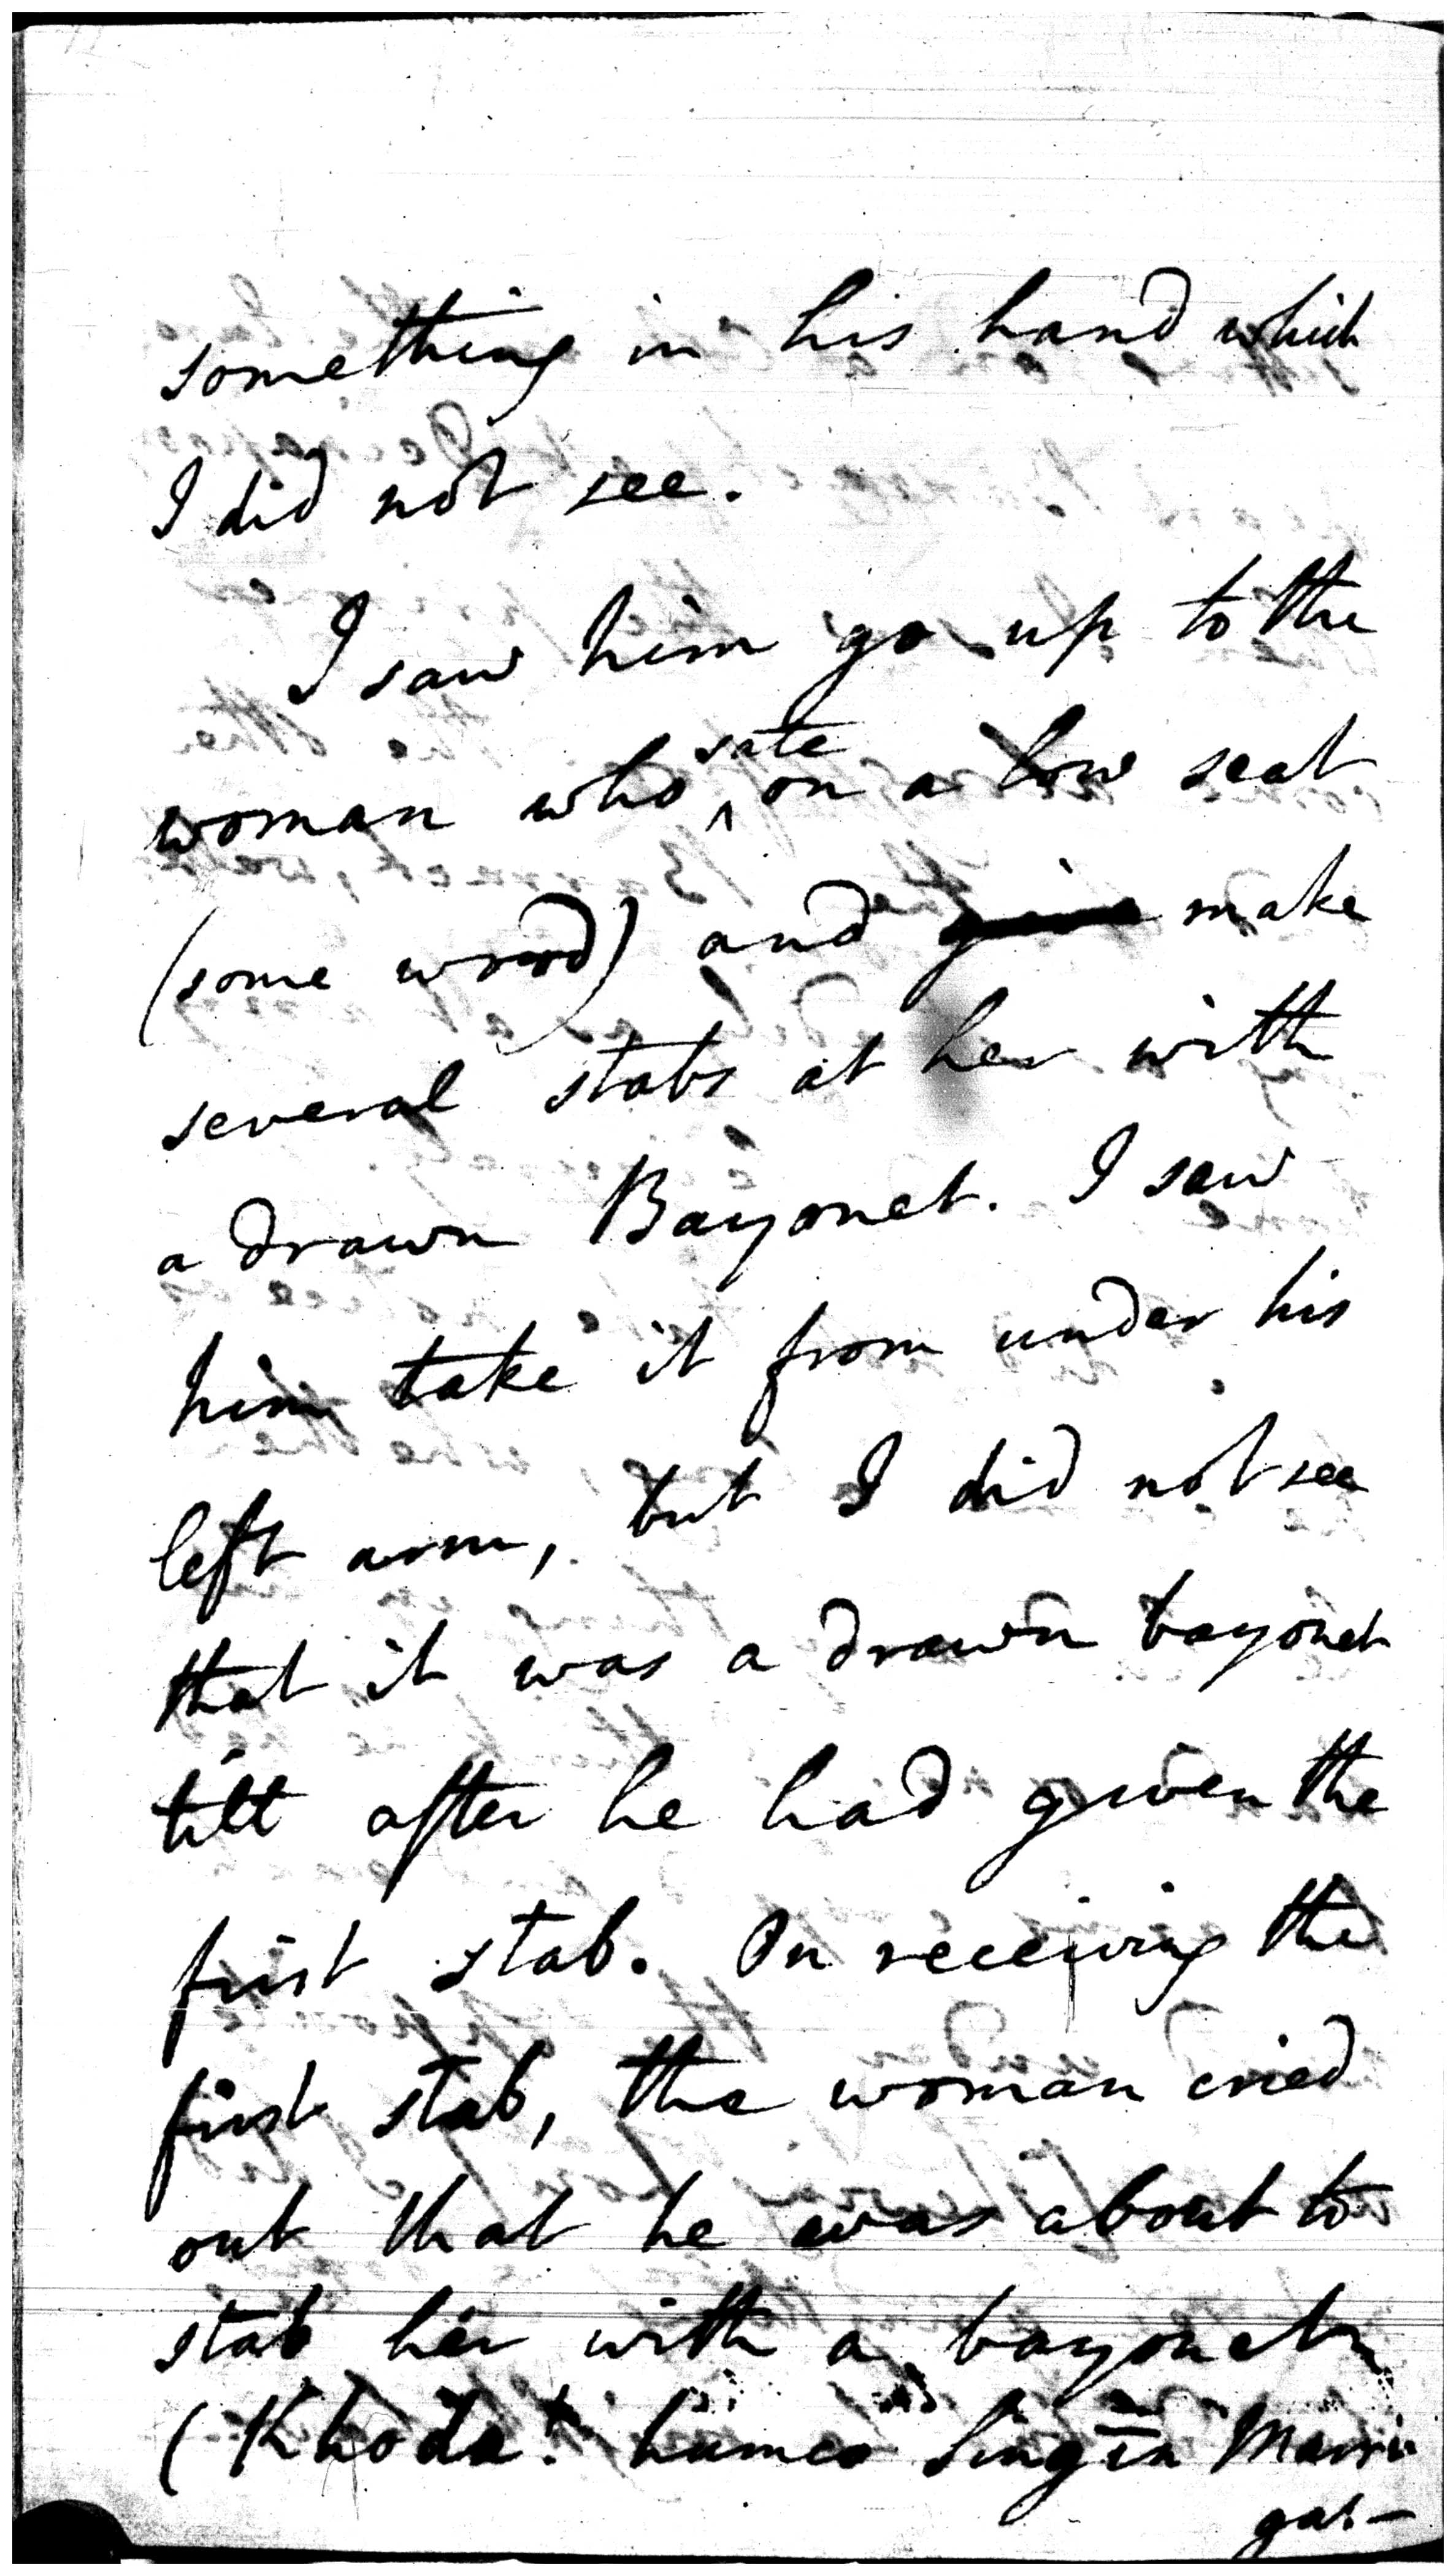 something in his hand which
I did not see.
I saw him go up to the
woman who sate on a low seat
(some wood) and give make
several stabs at her with
a drawn Bayonet. I saw
him take it from under his
left arm, but I did not see
that it was a drawn bayonet
till after he had given the
first stab. On receiving the
first stab, the woman cried
out that he was about to
stab her with a bayonet
(Khoda